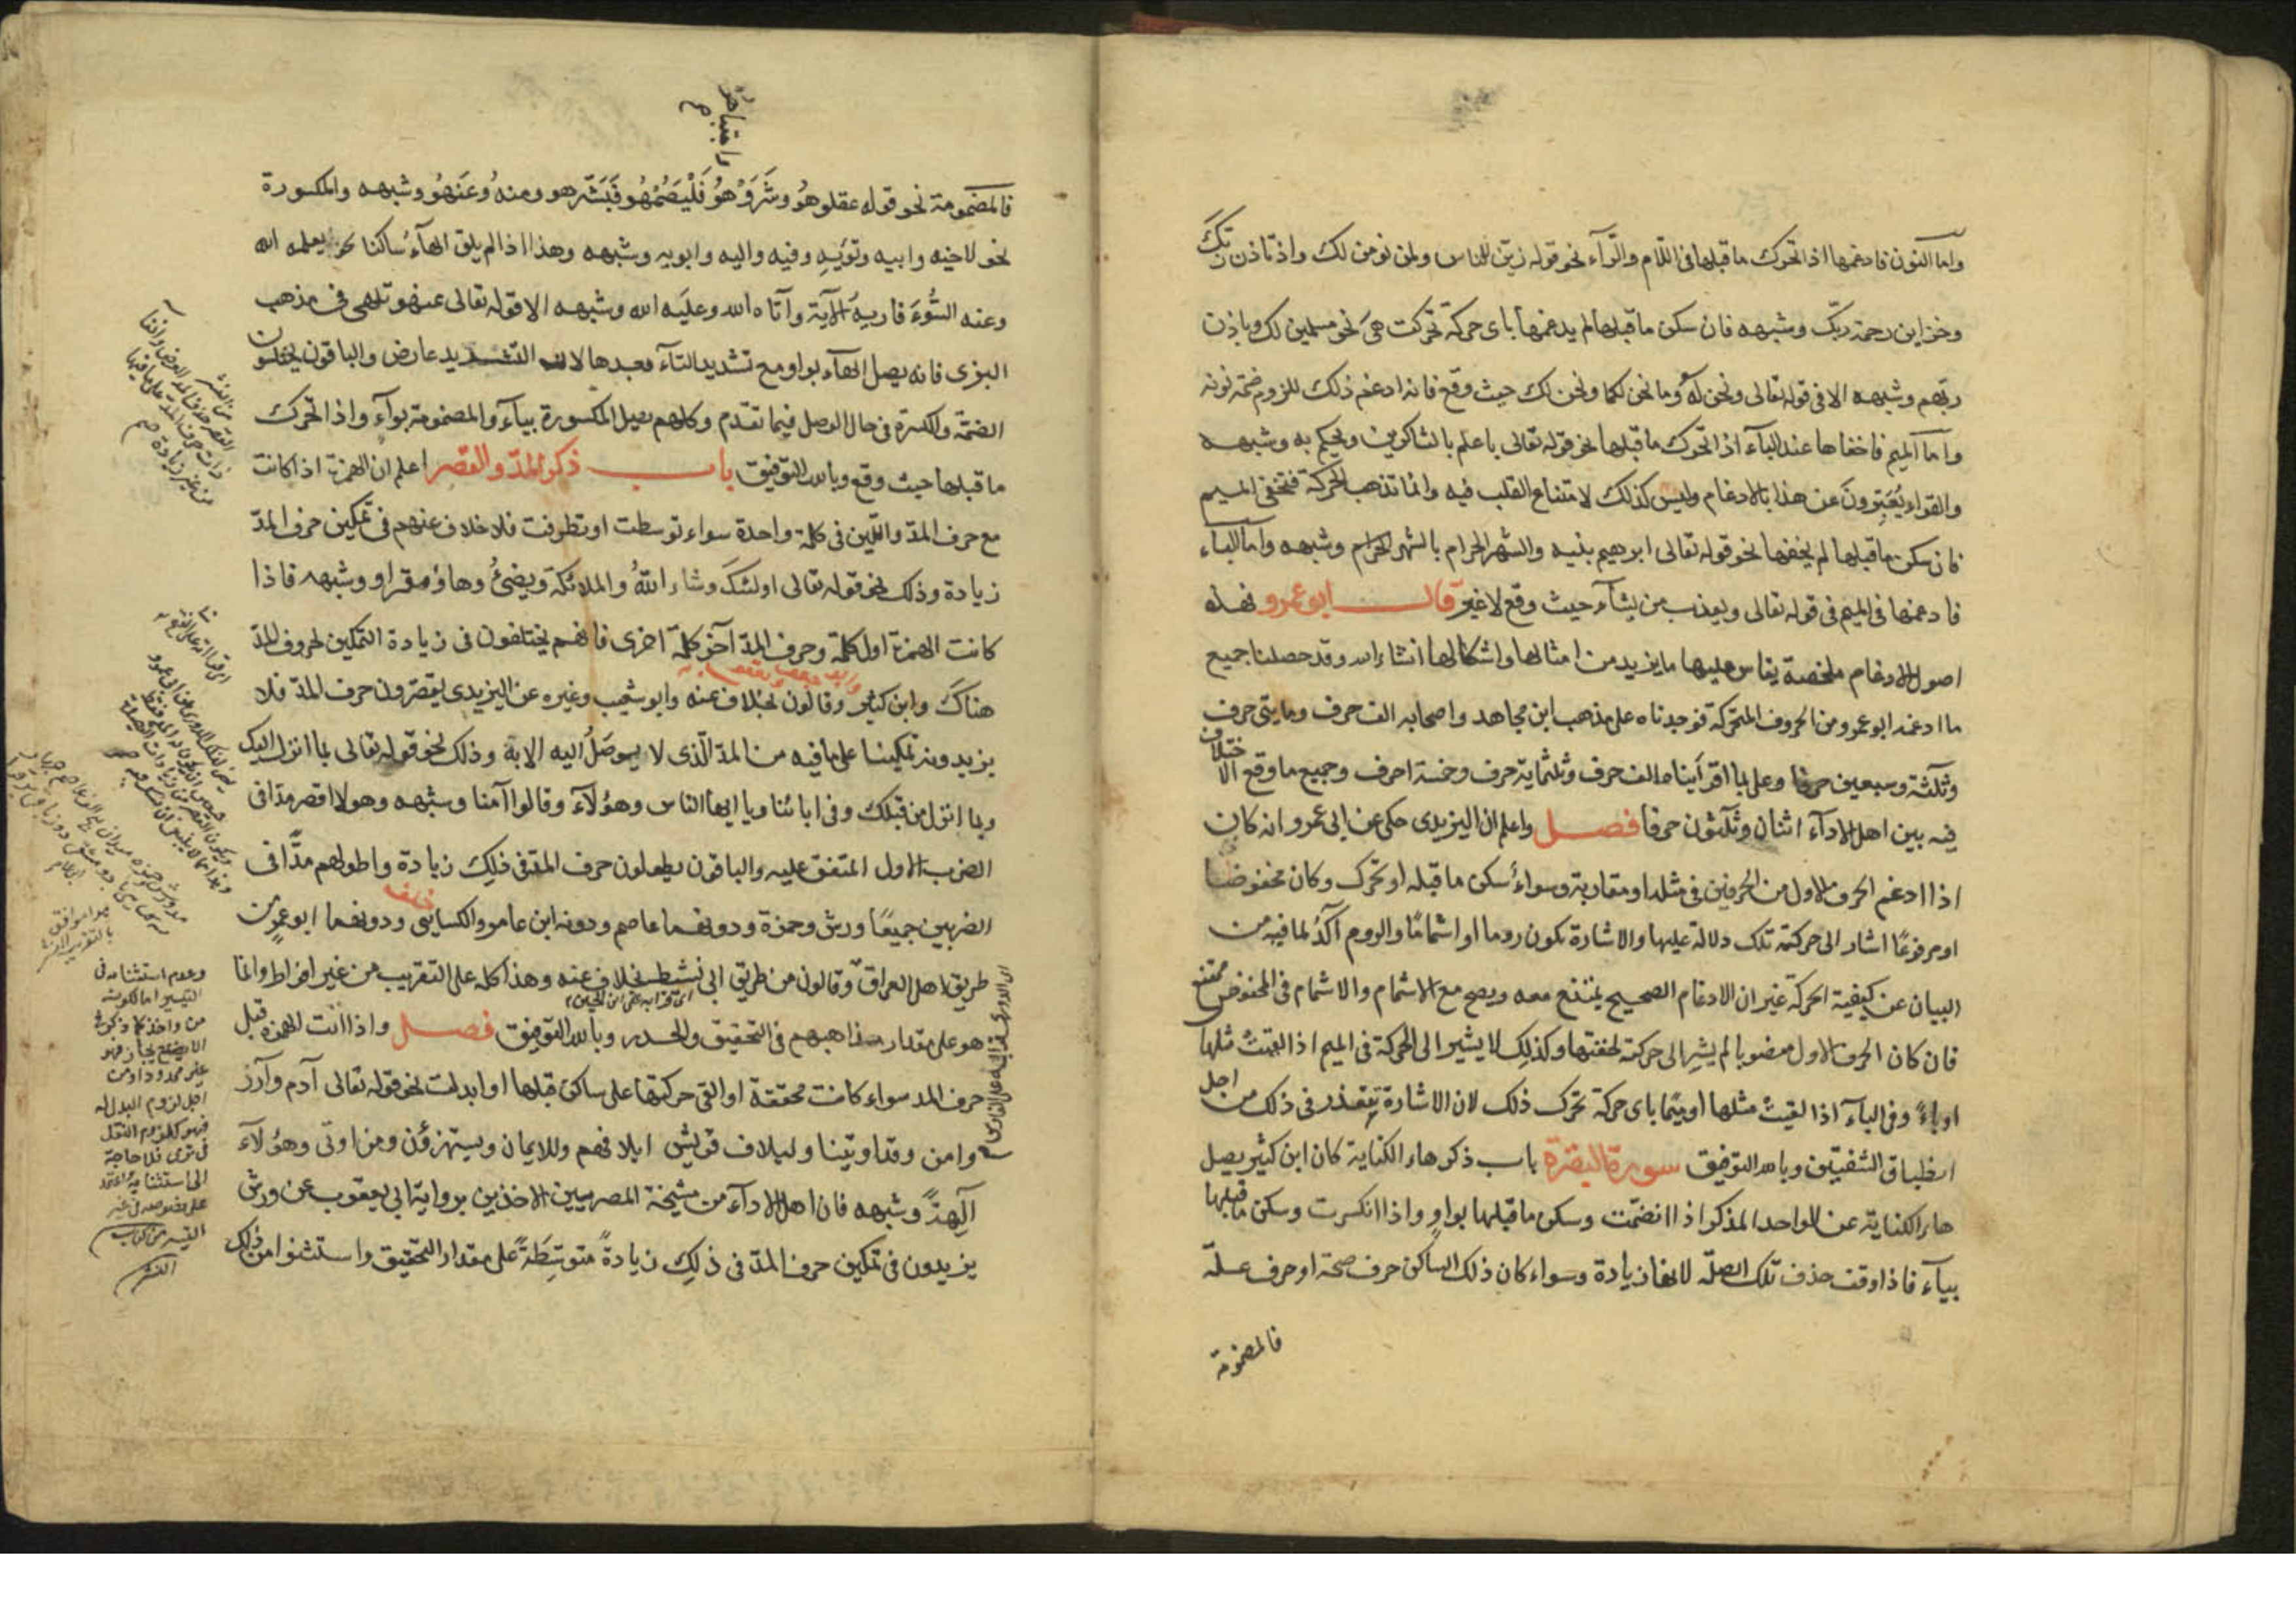 واما النون فادغمها اذا تحرك ما قبلها فى اللام والرآء نحو قوله زين للناس ولن نومن لك واذ تاذن ربك
وخزاين رحمة ربك وشبهه فان سكن ما قبلها لم يدغمها باى حركة تحركت هى نحو مسلمين لك وباذن
ربهم وشبهه الا فى قوله تعالى ونحن له وما نحن لكما ونحن لك حيث وقع فانه ادغم ذلك للزوم ضمة نونه
واما الميم فاخفاها عند البآء اذا تحرك ما قبلها نحو قوله تعالى باعلم بالشاكرين ويحكم به وشبهه
والقراء يُعَبِّرونَ عن هذا بالادغام وليس كذلك لامتناع القلب فيه وانما تذهب الحركة فتخفى الميم
فان سكن ما قبلها لم يخفها نحو قوله تعالى ابرهيم بنيه والشهر الحرام بالشهر الحرام وشبهه واما البآء
فادغمها فى الميم فى قوله تعالى ويعذب من يشآء حيث وقع لا غير قال ابو عمرو فهذه
اصول الادغام ملخصة يقاس عليها ما يزيد من امثالها واشكالها انشاء الله وقد حصلنا جميع
ما ادغمه ابو عمرو من الحروف المتحركة فوجدناه على مذهب ابن مجاهد واصحابه الف حرف ومايتى حرف
وثلثة وسبعين حرفا وعلى ما اقرأيناه الف حرف وثلثماية حرف وخمسة احرف وجميع ما وقع الاختلاف
فيه بين اهل الادآء اثنان وثلثون حرفا فصل واعلم ان اليزيدى حكى عن ابى عمرو انه كان
اذا ادغم الحرف الاول من الحرفين فى مثله او مقاربة وسواءٌ سكن ما قبله او تحرك وكان مخفوضا
او مرفوعًا اشار الى حركته تلك دلالة عليها والاشارة تكون روما او اشمامًا والروم آكدُ لما فيه من
البيان عن كيفية الحركة غير ان الادغام الصحيح يمتنع معه ويصح مع الاشمام والاشمام فى المخفوض ممتنع
فان كان الحرف الاول منصوبا لم يشر الى حركته لخفتها وكذلك لا يشير الى الحركة فى الميم اذا لقيت مثلها
او باءً وفى البآء اذا لقيت مثلها او ميمًا باى حركة تحرك ذلك لان الاشارة تتعذر فى ذلك من اجل
انطباق الشفتين وبالله التوفيق سورة البقرة باب ذكر هاء الكناية كان ابن كثير يصل
هاء الكناية عن الواحد المذكر اذا انضمت وسكن ما قبلها بواو واذا انكسرت وسكن ما قبلها
بيآء فاذا وقف حذف تلك الصلة لانها زيادة وسواء كان ذلك الساكن حرف صحة او حرف علّة
فالمضمومة
فالمضمومة نحو قوله عقلوهُو وشَرَوْهُو فَلْيَصُمْهُو فَبَشّرهو ومنهُو وعَنهُو وشبهه والمكسورة
نحو لاخيه وابيه وتؤيهِ وفيه واليه وابويه وشبهه وهذا اذا لم يلق الهآءُ ساكنا نحو يعلمه الله
وعنه السُّوءَ فاريهُ الآية وآتاه الله وعليه الله وشبهه الا قوله تعالى عنهو تلهى فى مذهب
البزى فانه يصل الهآء بواو مع تشديد التآء بعدها لان التشديد عارض والباقون يختلسون
الضمة والكسرة فى حال الوصل فيما تقدم وكلهم يصل المكسورة بيآء والمضمومة بوآء واذا تحرك
ما قبلها حيث وقع وبالله التوفيق باب ذكر المدّ والقصر اعلم ان الهمزة اذا كانت
مع حرف المد واللين فى كلمة واحدة سواء توسطت او تطرفت فلا خلاف عنهم فى تمكين حرف المدّ
زيادة وذلك نحو قوله تعالى اولئك وشاء اللهُ والملائكة ويضئُ وهاؤم اقراو وشبهه فاذا
كانت الهمزة اول كلمة وحرف المدّ آخر كلمة اخرى فانهم يختلفون فى زيادة التمكين لحروف المدّ
هناك وابن كثير وقالون بخلاف عنه وابو شعيب وغيره عن اليزيدى يقصرون حرف المدّ فلا
يزيدونه تمكينا على ما فيه من المد الّذى لا يوصَلُ اليه الا به وذلك نحو قوله تعالى بما انزل اليك
وما انزل من قبلك وفى ابائنا ويا ايها الناس وهؤلآء وقالوا آمنا وشبهه وهولا اقصر مدّا فى
الضرب الاول المتفق عليه والباقون يطولون حرف المد فى ذلِك زيادة واطولهم مدًّا فى
الضربين جميعًا ورش وحمزة ودونهما عاصم ودونه ابن عامر والكسائى ودونهما ابو عمرو من
طريق اهل العراق وقالون من طريق ابى نشيط بخلاف عنه وهذا كله على التقريب من غير افراط وانما
هو على مقدار مذاهبهم فى التحقيق والحدر وبالله التوفيق فصل واذا اتت الهمزة قبل
حرف المد سواء كانت محققة او القى حركتها على ساكن قبلها او ابدلت نحو قوله تعالى آدم وآزر
وامن وقد اوتينا ولايلاف قريش ايلافهم وللايمان ويستهزؤن ومن اوتى وهؤلآء
آلِهةً وشبهه فان اهل الادآء من مشيخة المصريين الاخذين برواية ابى يعقوب عن ورش
يزيدون فى تمكين حرف المدّ فى ذلِك زيادةً متوسِّطَةً على مقدار التحقيق واستثنوا من ذلك
وعدم استثنائه فى
التيسير اما لكونه
من واخذ كما ذكر فى
الايضاح يجاز فهو
غير ممدود او من
اجل لزوم البدل له
فهو كلزوم النقل
فى ترى فلا حاجة
الى استثنائه